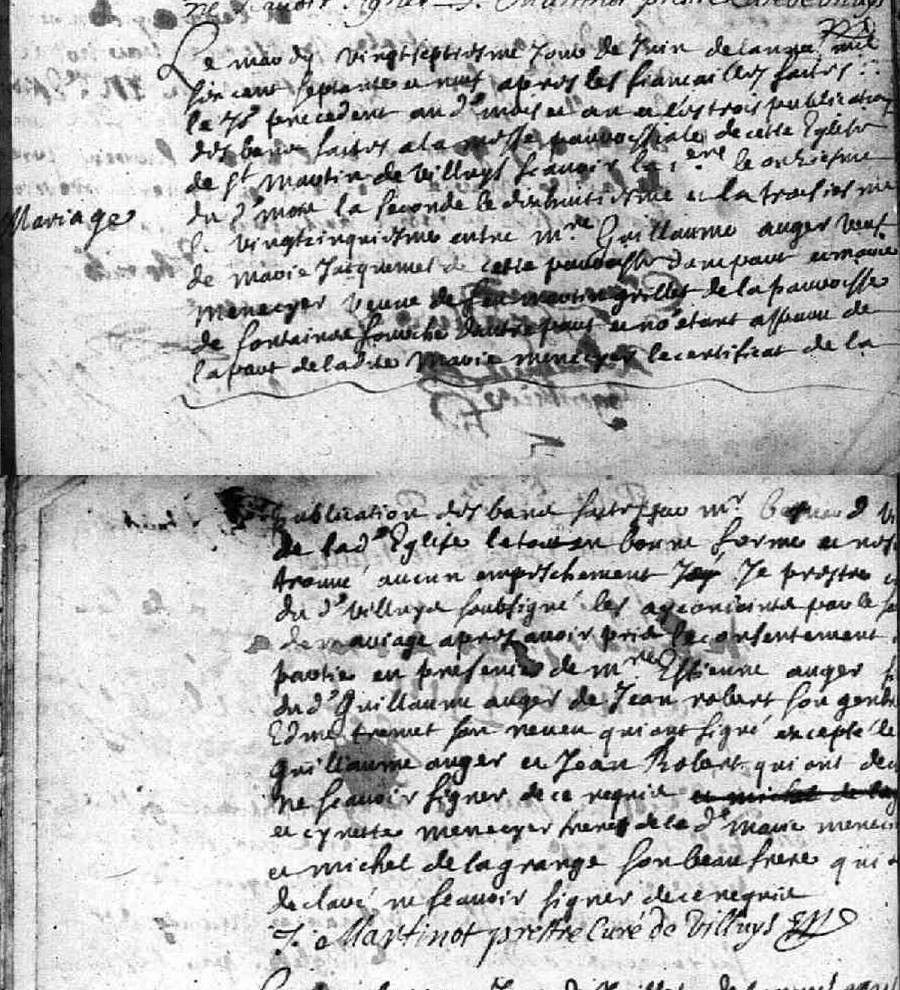 Le mardy vingtseptiesme Jour de Juin delannee mil
six cent septante et neuf apres les fiancailles faites
le Jr precedent au d. mois et an et les trois publication
des bans faites a la messe parroissiale de cette Eglise
de st Martin de Villuys scavoir la 1ere le onziesme
du d. mois la seconde le dixhuitiesme et la troisiesme
vingtcinquiesme entre mre Guillaume auger veuf
de marie Jacquemet de cette parroisse dune part et marie
menecyer veuve de feu martin grillet de la parroisse
Mariage
de fontaine fourche dautre part et no etant apparu de
la part de ladite Marie menecyer le certificat de la
publication des bans faite par mr d
de lad. Eglise le tout en bonne forme et
trouvé aucun empeschement Je prestre
du d. Villuys soubsigné les ay conjoints par le
de mariage apres avoir pris le consentement
partie en presence de mre Estienne auger
du d. Guillaume auger de Jean robert son gendre
Edme tremet son neveu qui ont signé excepté le
guillaume auger et Jean Robert qui ont
ne scavoir signer de ce requis et michel de lag
et cyrette menecyer freres de la d. Marie
et michel de lagrange son beau frere qui
declaré ne scavoir signer de ce requis
J. Martinot prestre Curé de Villuys